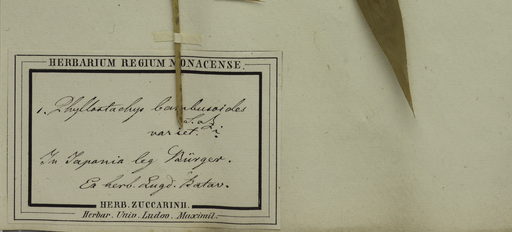 HERBARIUM REGIUM MONACENSE.
1. Phyllostachys bambusoides
S. et Z.
variet. ?
In Japonia leg Bürger.
Ex herb. Lugd. Batav.
HERB. ZUCCARINII.
Herbar. Univ. Ludov. Maximil.